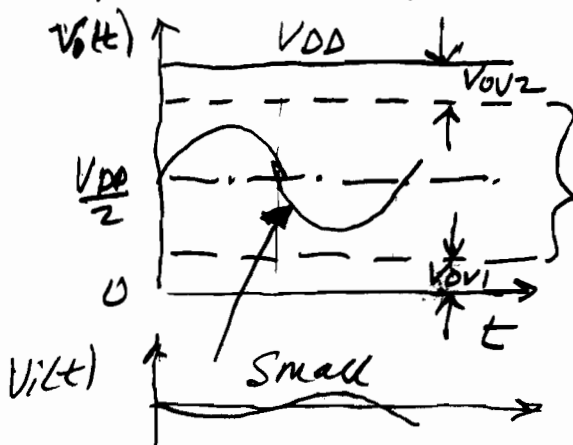 Vo(t)
VDD
VOV2
VDD
2
VOV1
0
t
Vi(t)
Small